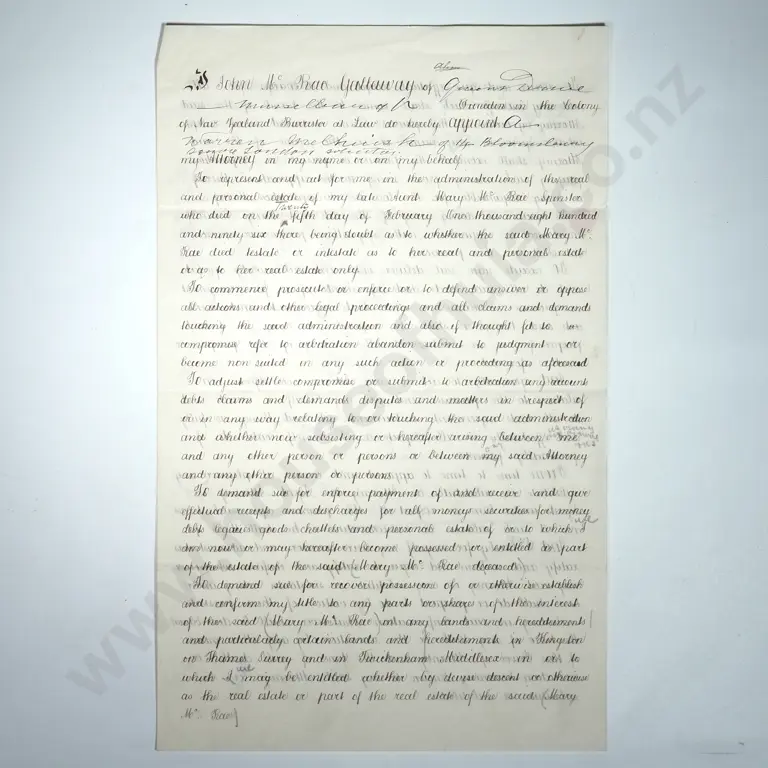 I John Mc. Rae Gallaway of Queens Drive
Musselburgh Dunedin in the Colony
of New Zealand Barrister at Law do hereby appoint A
Warren Mc of Bloomsbury
London solicitor
my Attorney in my name or on my behalf
To represent and act for me in the administration of the real
and personal estate of my late Aunt Mary Mc. Rae Spinster
who died on the twenty fifth day of February One thousand eight hundred
and ninety six there being doubt as to whether the said Mary Mc.
Rae died testate or intestate as to her real and personal estate
or as to her real estate only
To commence prosecute or enforce or to defend answer or oppose
all actions and other legal proceedings and all claims and demands
touching the said administration and also if thought fit to
compromise refer to arbitration abandon submit to judgment or
become non suited in any such action or proceeding as aforesaid
To adjust settle compromise or submit to arbitration any account
debts claims and demands disputes and matters in respect of
or in any way relating to or touching the said administration
and whether now subsisting or hereafter arising between me
and any other person or persons or between my said Attorney
and any other person or persons
To demand sue for enforce payment of and receive and give
effectual receipts and discharges for all moneys securities for money
debts legacies goods chattels and personal estate of or to which I
am now or may hereafter become possessed or entitled as part
of the estate of the said Mary Mc. Rae deceased
To demand sue for recover possession of or otherwise establish
and confirm my title to any parts or shares of the interest
of the said Mary Mc. Rae on any lands and hereditaments
and particularly certain lands and hereditaments in Kingston
on Thames Surrey and in Twickenham Middlesex on or to
which I may be entitled whether by devise descent or otherwise
as the real estate or part of the real estate of the said Mary
Mc. Rae
www.houseofhulio.co.nz